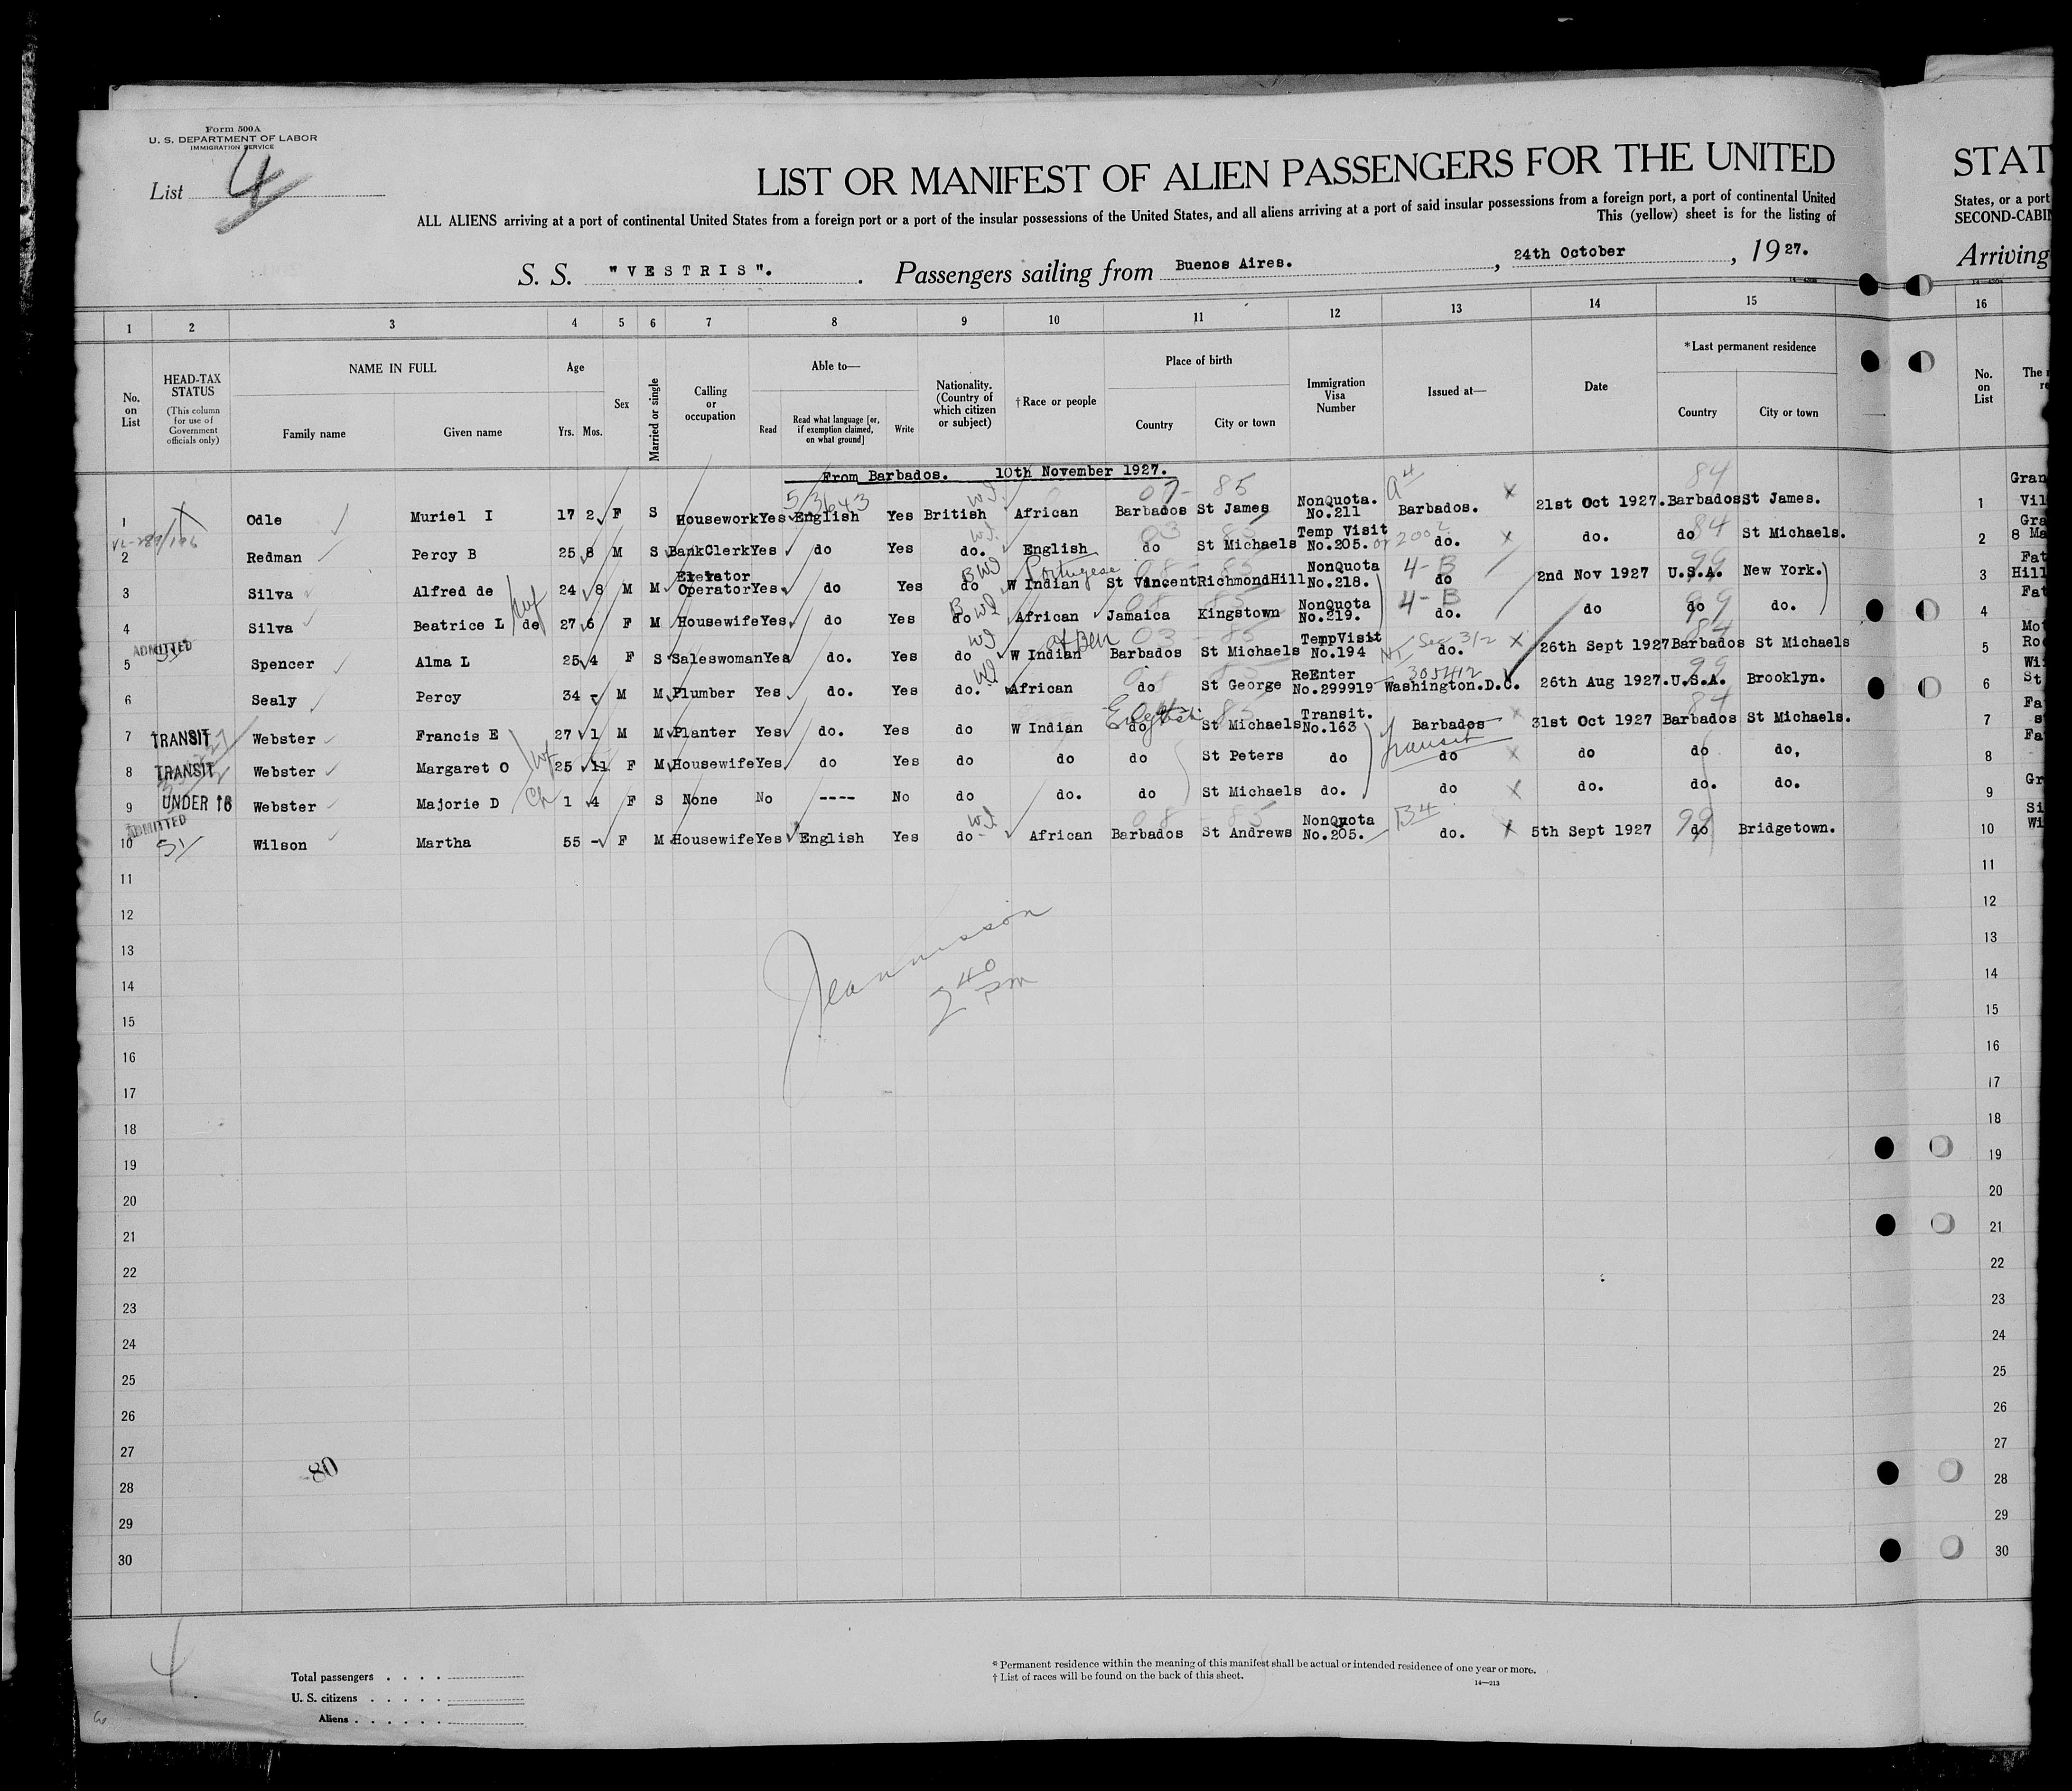 Form 500A
U. S. DEPARTMENT OF LABOR
IMMIGRATION SERVICE
List 4
LIST OR MANIFEST OF ALIEN PASSENGERS FOR THE UNITED STAT
ALL ALIENS arriving at a port of continental United States from a foreign port or a port of the insular possessions of the United States, and all aliens arriving at a port of said insular possessions from a foreign port, a port of continental United States, or a port
This (yellow) sheet is for the listing of SECOND-CABIN
S. S. "VESTRIS". Passengers sailing from Buenos Aires. , 24th October , 1927. Arriving
1 2 3 4 5 6 7 8 9 10 11 12 13 14 15 16
No. on List HEAD-TAX STATUS (This column for use of Government officials only) NAME IN FULL Family name Given name Age Yrs. Mos. Sex Married or single Calling or occupation Able to— Read Read what language [or, if exemption claimed, on what ground] Write Nationality. (Country of which citizen or subject) † Race or people Place of birth Country City or town Immigration Visa Number Issued at— Date * Last permanent residence Country City or town No. on List
From Barbados. 10th November 1927.
1 Odle Muriel I 17 2 F S Housework Yes English Yes British W.I. African Barbados St James NonQuota. No.211 Barbados. 21st Oct 1927. Barbados St James. 1 Gran Vil
2 Redman Percy B 25 8 M S BankClerk Yes do Yes do. W.I. English do St Michaels Temp Visit No.205. do. do. do St Michaels. 2 Gra 8 Ma
3 Silva Alfred de 24 8 M M Elevator Operator Yes do Yes do BWI W Indian Portugese St Vincent RichmondHill NonQuota No.218. 4-B do 2nd Nov 1927 U.S.A. New York. 3 Fat Hill
4 Silva Beatrice L de wf 27 6 F M Housewife Yes do Yes do B WI African Jamaica Kingstown NonQuota No.219. 4-B do. do do do. 4 Fat
5 ADMITTED Spencer Alma L 25 4 F S Saleswoman Yes do. Yes do WI W Indian Barbados St Michaels TempVisit No.194 Sec 3/2 do. 26th Sept 1927 Barbados St Michaels 5 Mot Roe
6 Sealy Percy 34 - M M Plumber Yes do. Yes do. WI African do St George ReEnter No.299919 305412 Washington.D.C. 26th Aug 1927. U.S.A. Brooklyn. 6 Wi St
7 TRANSIT Webster Francis E 27 1 M M Planter Yes do. Yes do W Indian English do St Michaels Transit. No.163 Barbados 31st Oct 1927 Barbados St Michaels. 7 Fa s
8 TRANSIT Webster Margaret O wf 25 11 F M Housewife Yes do Yes do do do St Peters do Transit do do do do, 8 Fa
9 UNDER 16 Webster Majorie D Ch 1 4 F S None No ---- No do do. do St Michaels do. do do. do. do. 9 Gr
10 ADMITTED Wilson Martha 55 - F M Housewife Yes English Yes do W.I. African Barbados St Andrews NonQuota No.205. B4 do. 5th Sept 1927 do Bridgetown. 10 Si Wi
11 11
12 12
13 13
14 14
2 40 pm
15 15
16 16
17 17
18 18
19 19
20 20
21 21
22 22
23 23
24 24
25 25
26 26
27 27
80
28 28
29 29
30 30
4
Total passengers . . . .
U. S. citizens . . . . .
Aliens . . . . . .
* Permanent residence within the meaning of this manifest shall be actual or intended residence of one year or more.
† List of races will be found on the back of this sheet.
14—213